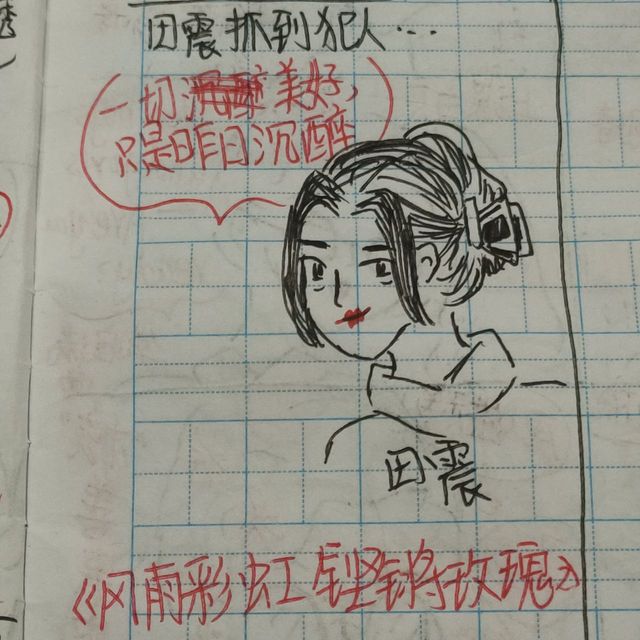 田震抓到犯人...
一切美好，
只是昨日沉醉
田震
《风雨彩虹铿锵玫瑰》